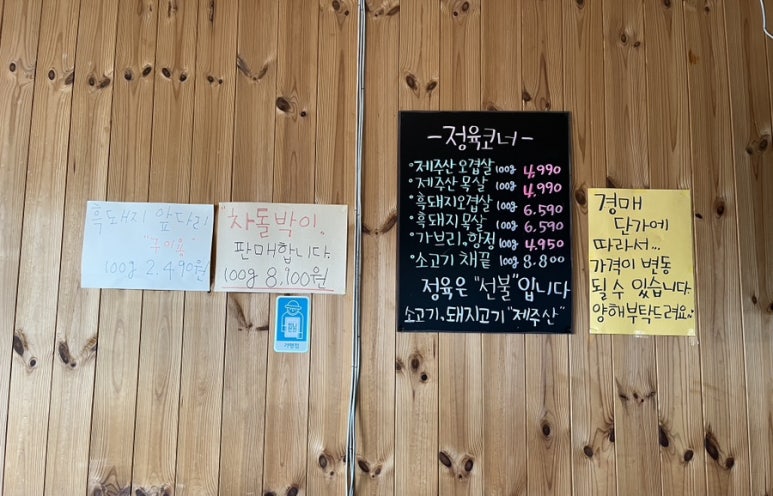 흑돼지 앞다리
"구이용"
100g 2,490원
"차돌박이"
판매합니다
100g 8,900원
가맹점
-정육코너-
제주산 오겹살 100g 4,990
제주산 목살 100g 4,990
흑돼지오겹살 100g 6,590
흑돼지 목살 100g 6,590
가브리, 항정 100g 4,950
소고기 채끝 100g 8,800
정육은 "선불"입니다
소고기, 돼지고기 "제주산"
경매
단가에
따라서...
가격이 변동
될 수 있습니다
양해부탁드려요